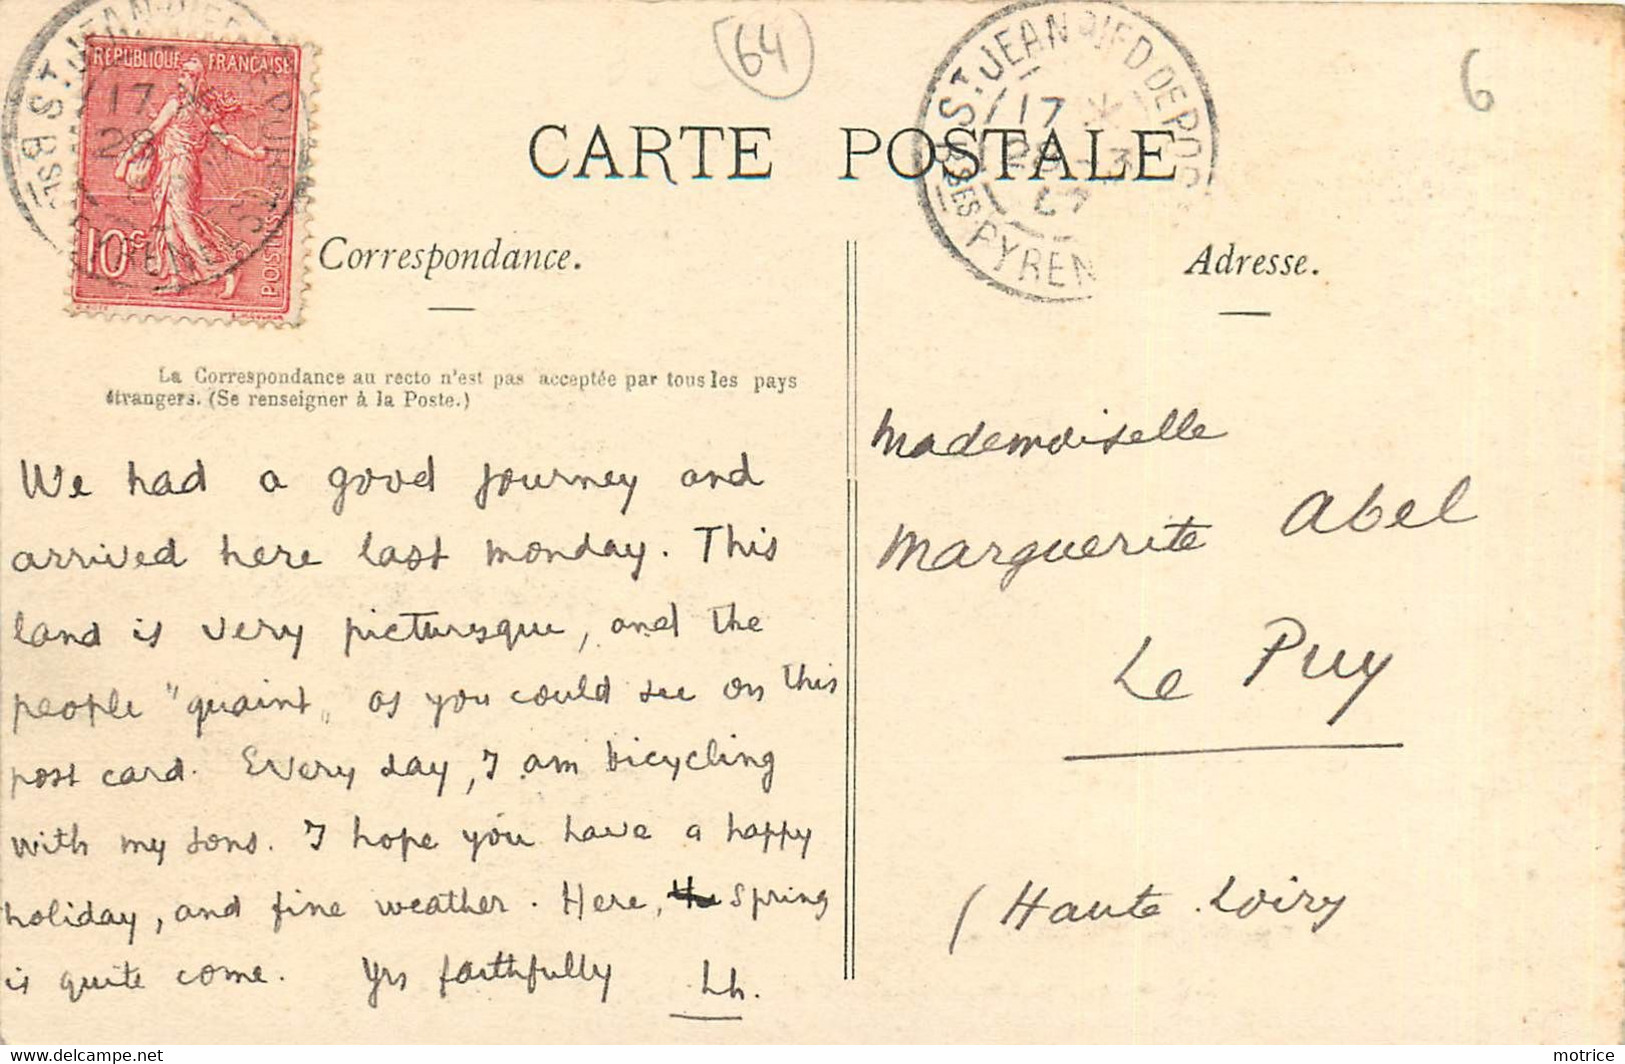 64
6
RÉPUBLIQUE FRANÇAISE
10c
POSTES
ST JEAN PIED DE PORT
17
28
BSES PYRENEES
ST JEAN PIED DE POR
17 *
28 - 3
BSSES PYREN
CARTE POSTALE
Correspondance.
Adresse.
La Correspondance au recto n'est pas acceptée par tous les pays
étrangers. (Se renseigner à la Poste.)
We had a good journey and
arrived here last monday. This
land is very picturesque, and the
people "quaint" as you could see on this
post card. Every day, I am bicycling
with my sons. I hope you have a happy
holiday, and fine weather. Here, the spring
is quite come. Yrs faithfully Lh.
Mademoiselle
Marguerite Abel
Le Puy
(Haute Loire)
delcampe.net
motrice